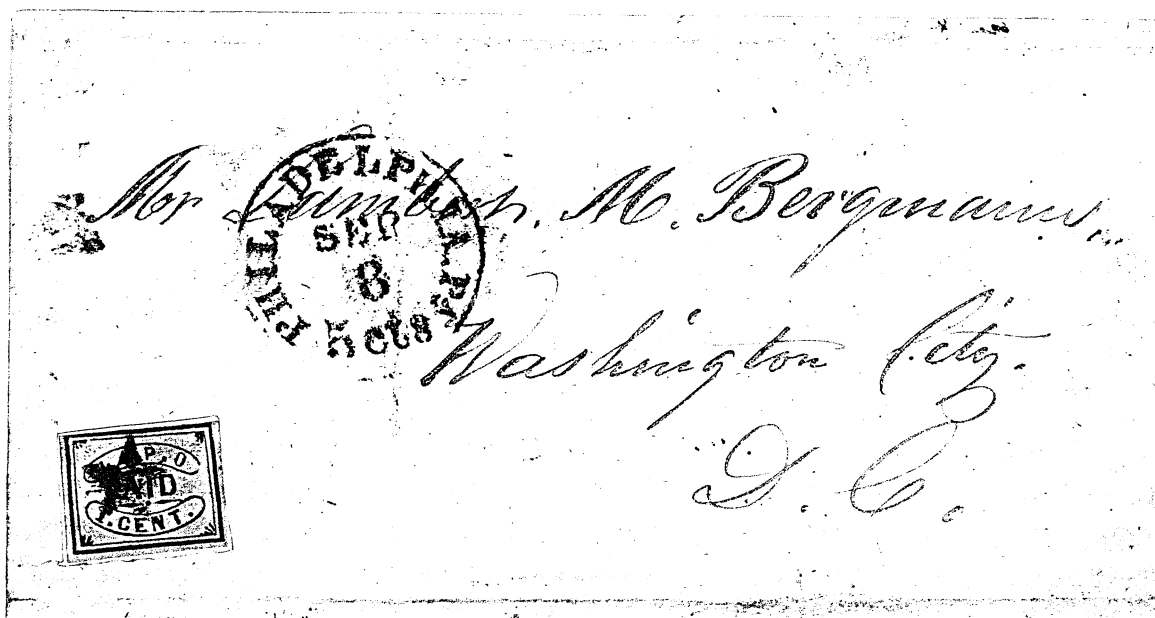 Mr Lambert. M. Bergmann,
PHILADELPHIA Pa.
SEP
8
5 cts
Washington City.
D. C.
P.O
PAID
1. CENT.